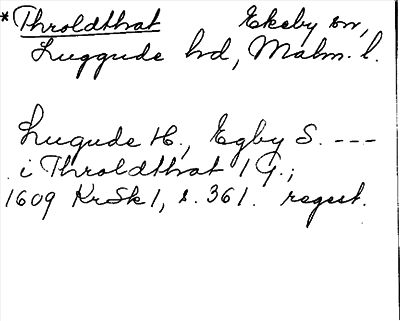 *Throldthrat Ekeby sn,
Luggude hd, Malm. l.
Lugude H., Egby S. ---
i Throldthrat 1 G.;
1609 KrSk 1, s. 361. regest.